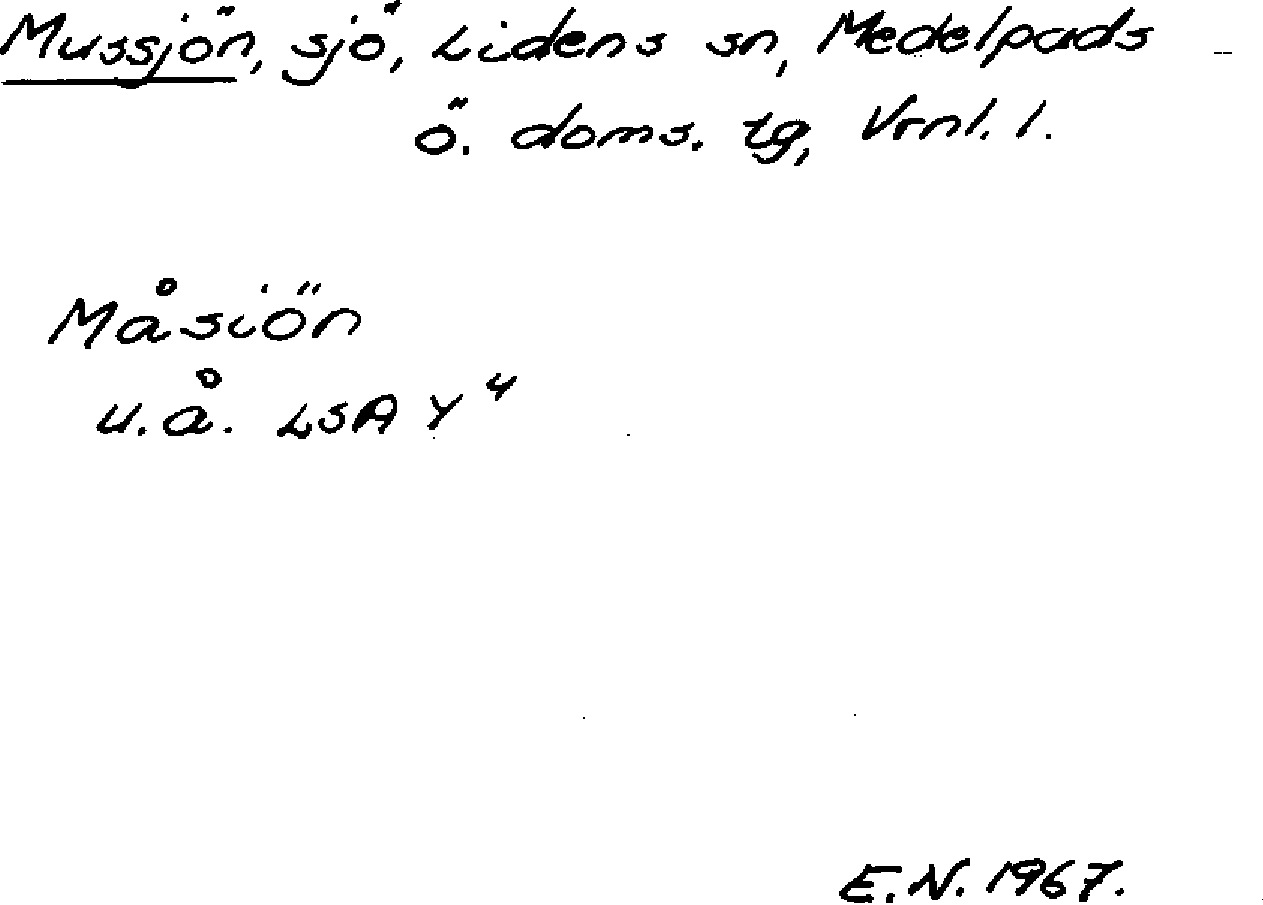 Mussjön, sjö, Lidens sn, Medelpads
ö. doms. tg, Vrnl. l.
Måsiön
u.å. LSA Y 4
E.N. 1967.